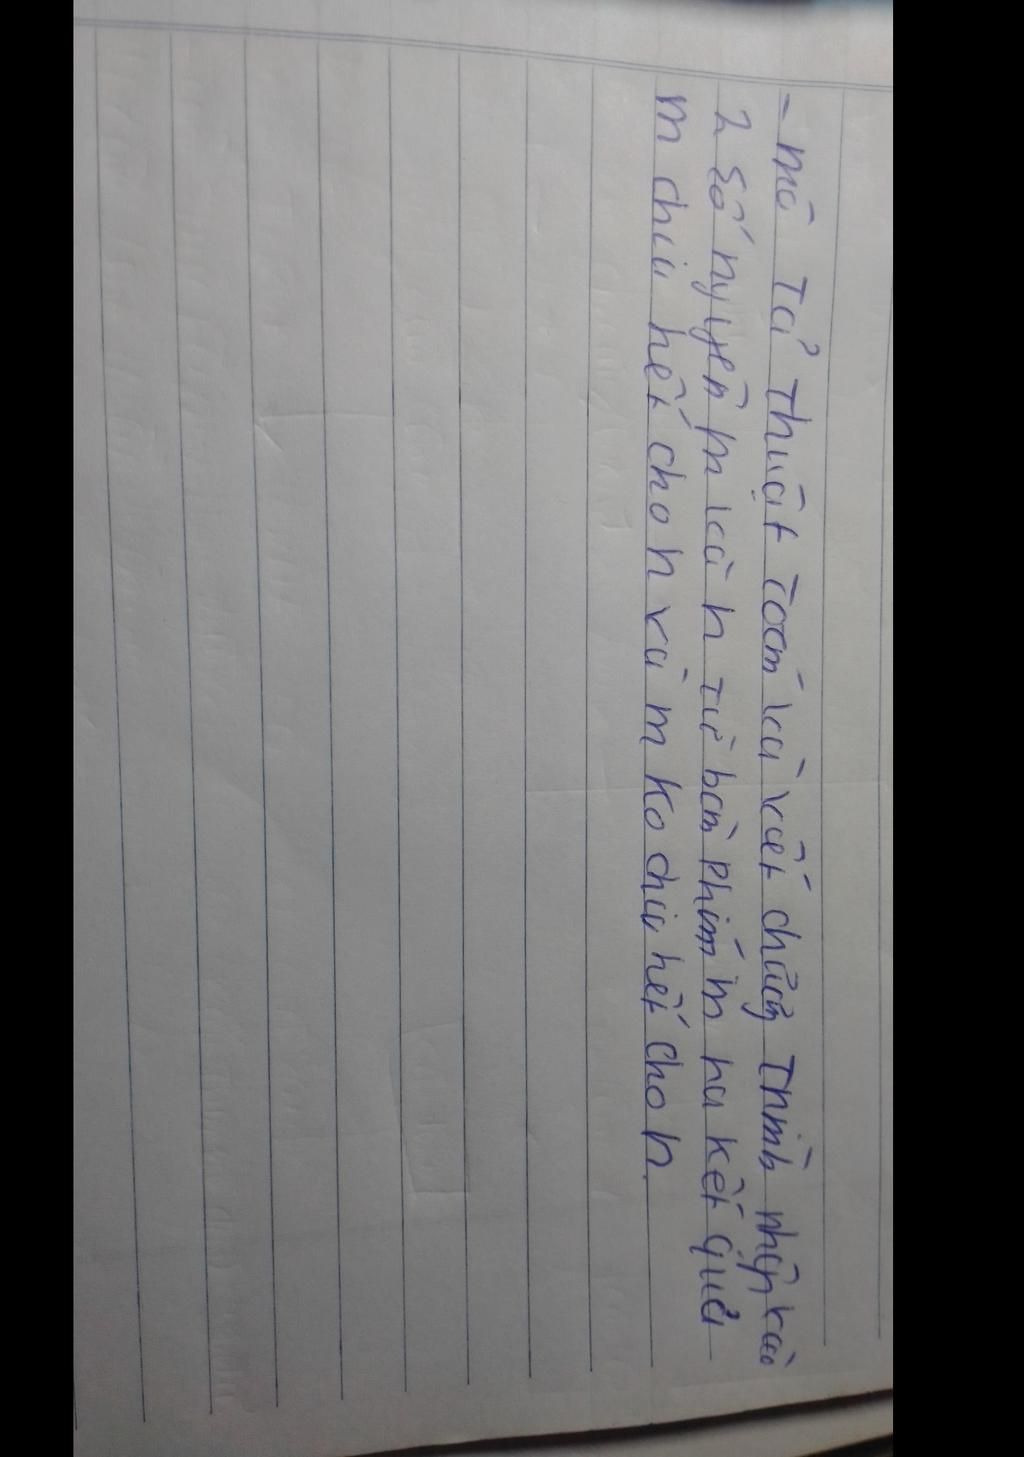 - mô Tả Thuật Toán và viết chương Trình nhập vào
2 số nguyên m và n từ bàn phím in ra kết quả
m chia hết cho n và m ko chia hết cho n.